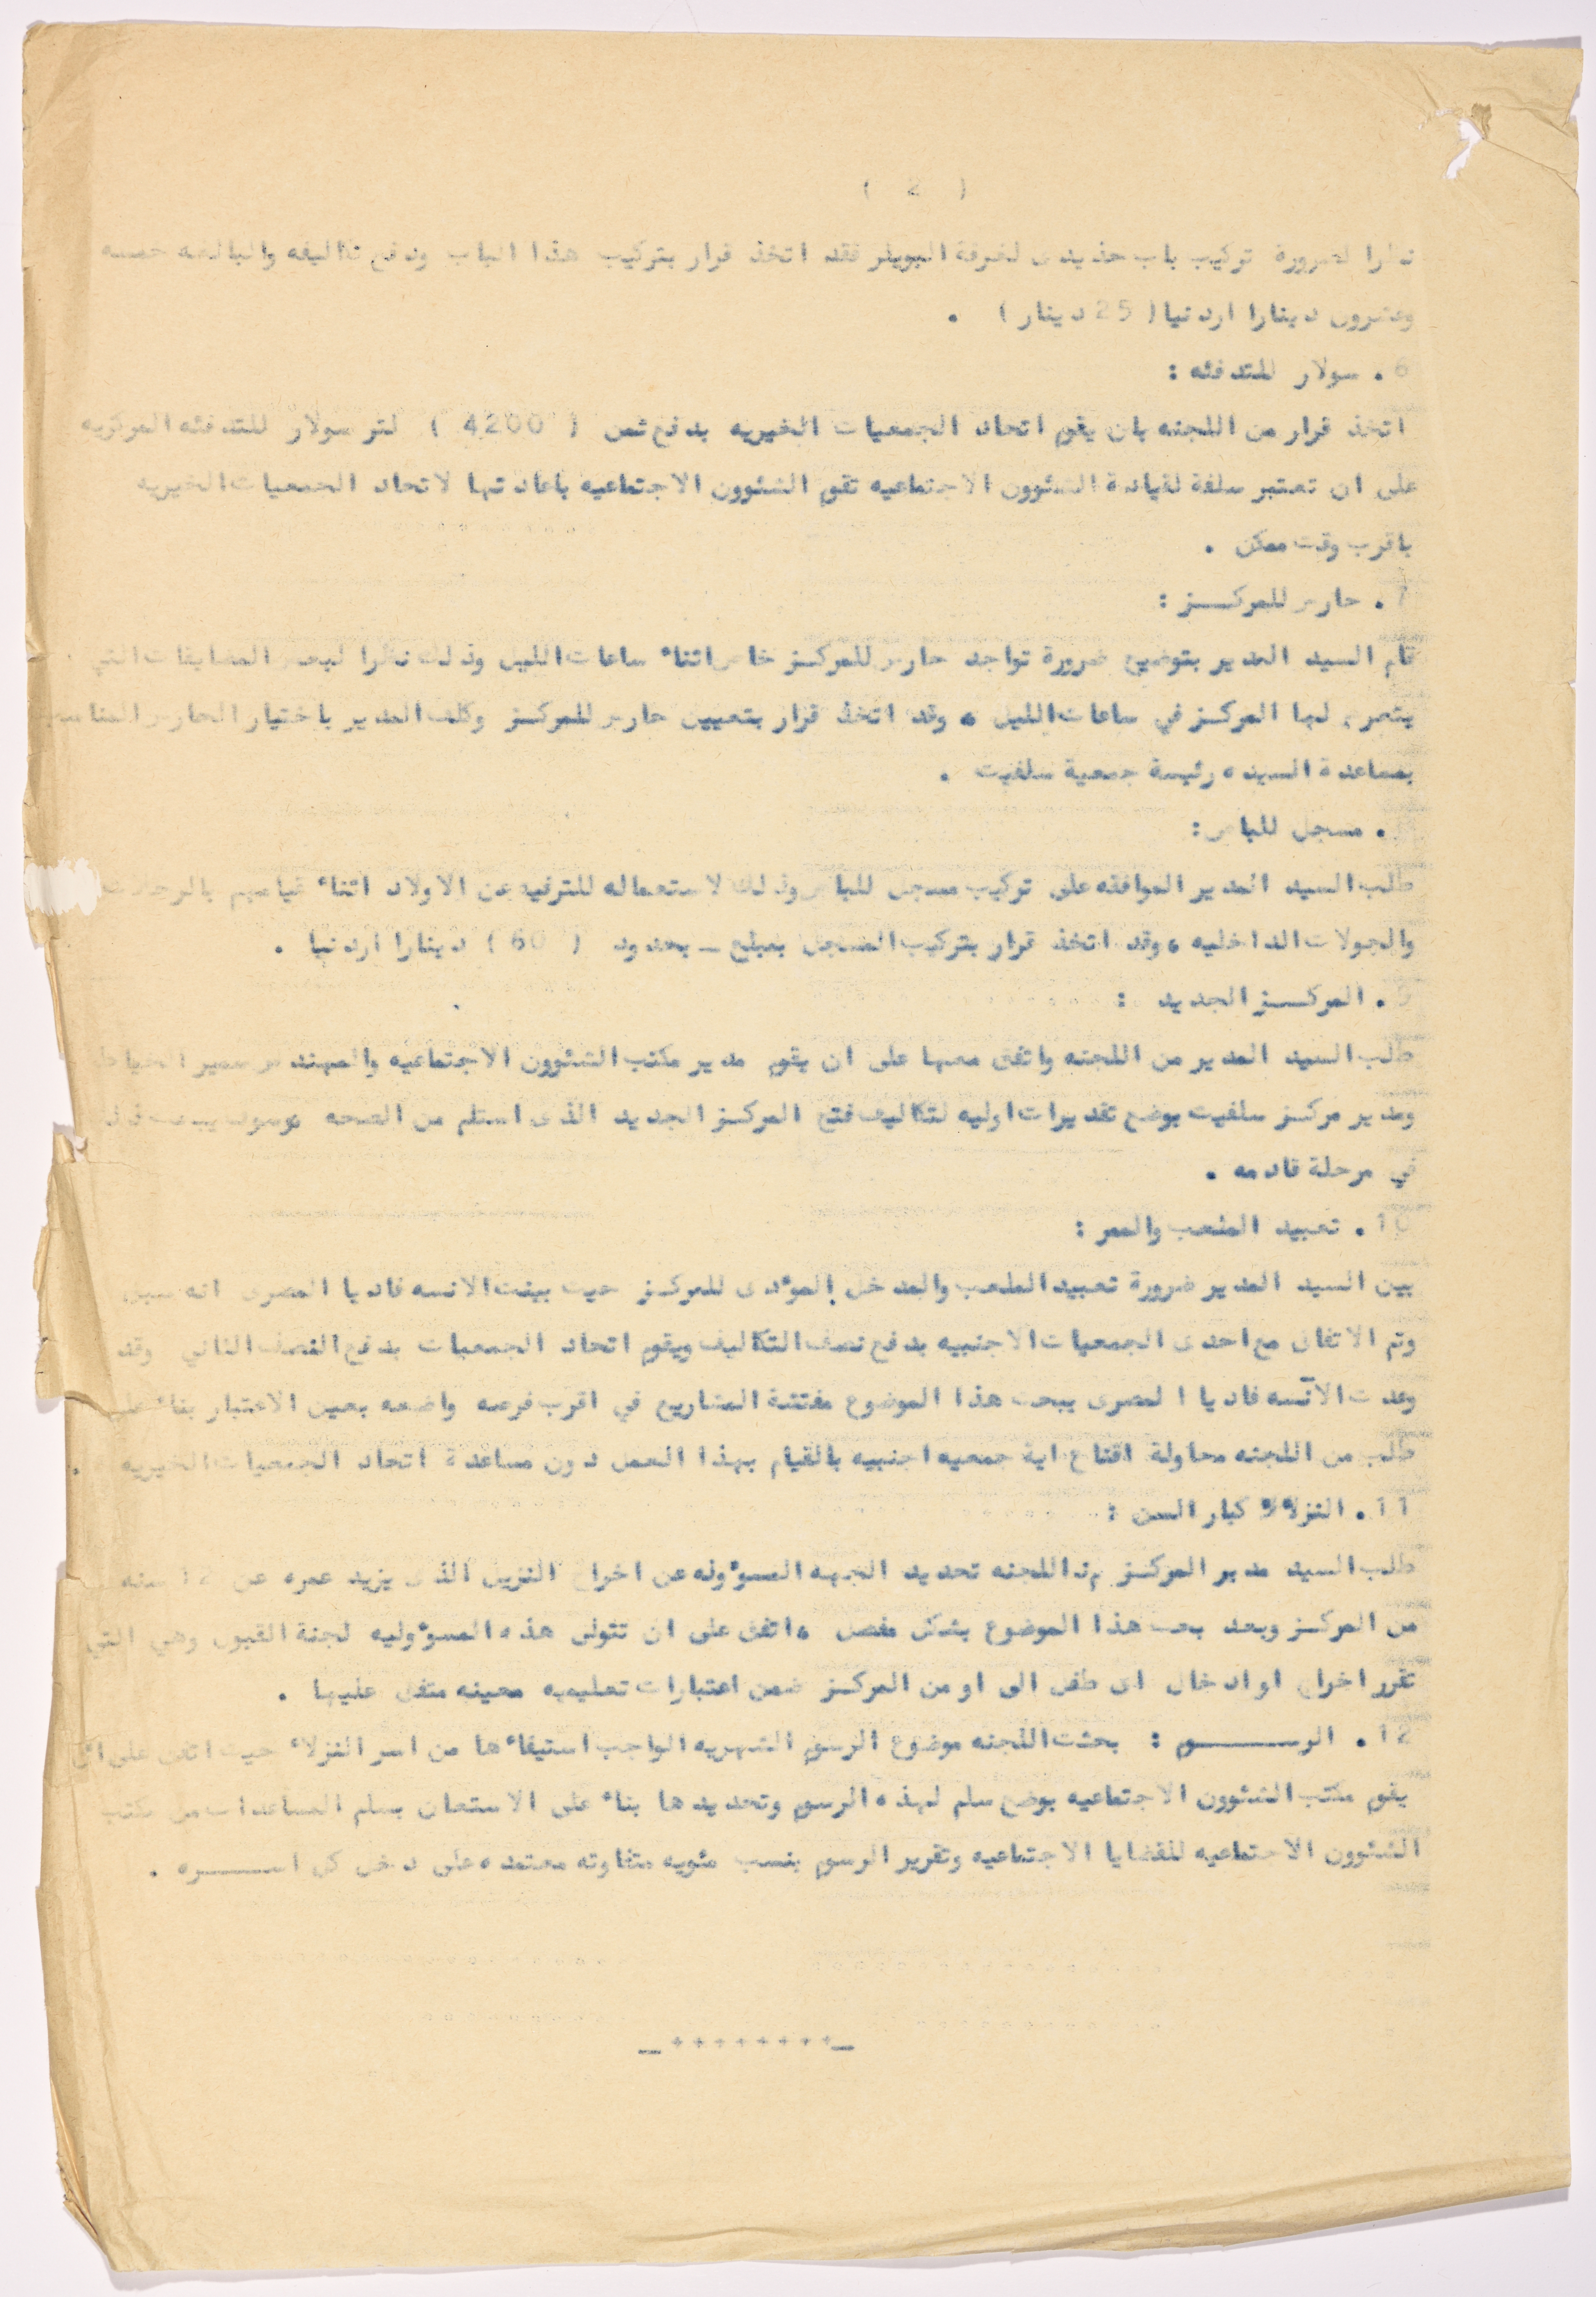 ( 2 )
نظرا لضرورة تركيب باب حذيدى لغرفة البويلر فقد اتخذ قرار بتركيب هذا الباب ودفع تكاليفه والبالغه خمسه
وعشرون دينارا اردنيا ( 25 دينار ) .
6 . سولار للتدفئه :
اتخذ قرار من اللجنه بان يقوم اتحاد الجمعيات الخيريه بدفع ثمن ( 4200 ) لتر سولار للتدفئه المركزيه
على ان تعتبر سلفة لقيادة الشئوون الاجتماعيه تقوم الشئوون الاجتماعيه باعادتها لاتحاد الجمعيات الخيريه
باقرب وقت ممكن .
7 . حارس للمركـــز :
قام السيد المدير بتوضيح ضرورة تواجد حارس للمركـز خاص اثناء ساعات الليل وذلك نظرا لبعض المضايقات التي
يتعرض لها المركـز في ساعات الليل ، وقد اتخذ قرار بتعيين حارس للمركـز وكلف المدير باختيار الحارس المناسب
بمساعدة السيده رئيسة جمعية سلفيت .
. مسجل للباص :
طلب السيد المدير الموافقه على تركيب مسجل للباص وذلك لاستعماله للترفيه عن الاولاد اثناء قيامهم بالرحلات
والجولات الداخليه ، وقد اتخذ قرار بتركيب المسجل بمبلغ ـ بحدود ( 60 ) دينارا اردنيا .
9 . المركـــز الجديد :
طلب السيد المدير من اللجنه واتفق معها على ان يقوم مدير مكتب الشئوون الاجتماعيه والمهندس سمير الخياط
ومدير مركـز سلفيت بوضع تقديرات اوليه لتكاليف فتح المركـز الجديد الذى استلم من الصحه وسوف يبحث
في مرحلة قادمه .
10 . تعبيد الملعب والممر :
بين السيد المدير ضرورة تعبيد الملعب والمدخل المؤدى للمركـز حيث بينت الانسه فاديا المصرى انه سبق
وتم الاتفاق مع احدى الجمعيات الاجنبيه بدفع نصف التكاليف ويقوم اتحاد الجمعيات بدفع النصف الثاني وقد
وعدت الآنسه فاديا المصرى ببحث هذا الموضوع مفتشة المشاريع في اقرب فرصه واضعه بعين الاعتبار بناء على
طلب من اللجنه محاولة اقناع اية جمعيه اجنبيه بالقيام بهذا العمل دون مساعدة اتحاد الجمعيات الخيريه .
11 . النزلاء كبار السن :
طلب السيد مدير المركـز من اللجنه تحديد الجهه المسؤوله عن اخراج النزيل الذى يزيد عمره عن سنه
من المركـز وبعد بحث هذا الموضوع بشكل مفصل ، اتفق على ان تتولى هذه المسؤوليه لجنة القبول وهي التي
تقرر اخراج او ادخال اى طفل الى او من المركـز ضمن اعتبارات تعليميه معينه متفق عليها .
12 . الرســـــوم : بحثت اللجنه موضوع الرسوم الشهريه الواجب استيفاءها من اسر النزلاء حيث اتفق على ان
يقوم مكتب الشئوون الاجتماعيه بوضع سلم لهذه الرسوم وتحديدها بناء على الاستعان بسلم المساعدات من مكتب
الشئوون الاجتماعيه للقضايا الاجتماعيه وتقرير الرسوم بنسب مئويه متفاوته معتمده على دخل كل اســـره .
_++++++++_